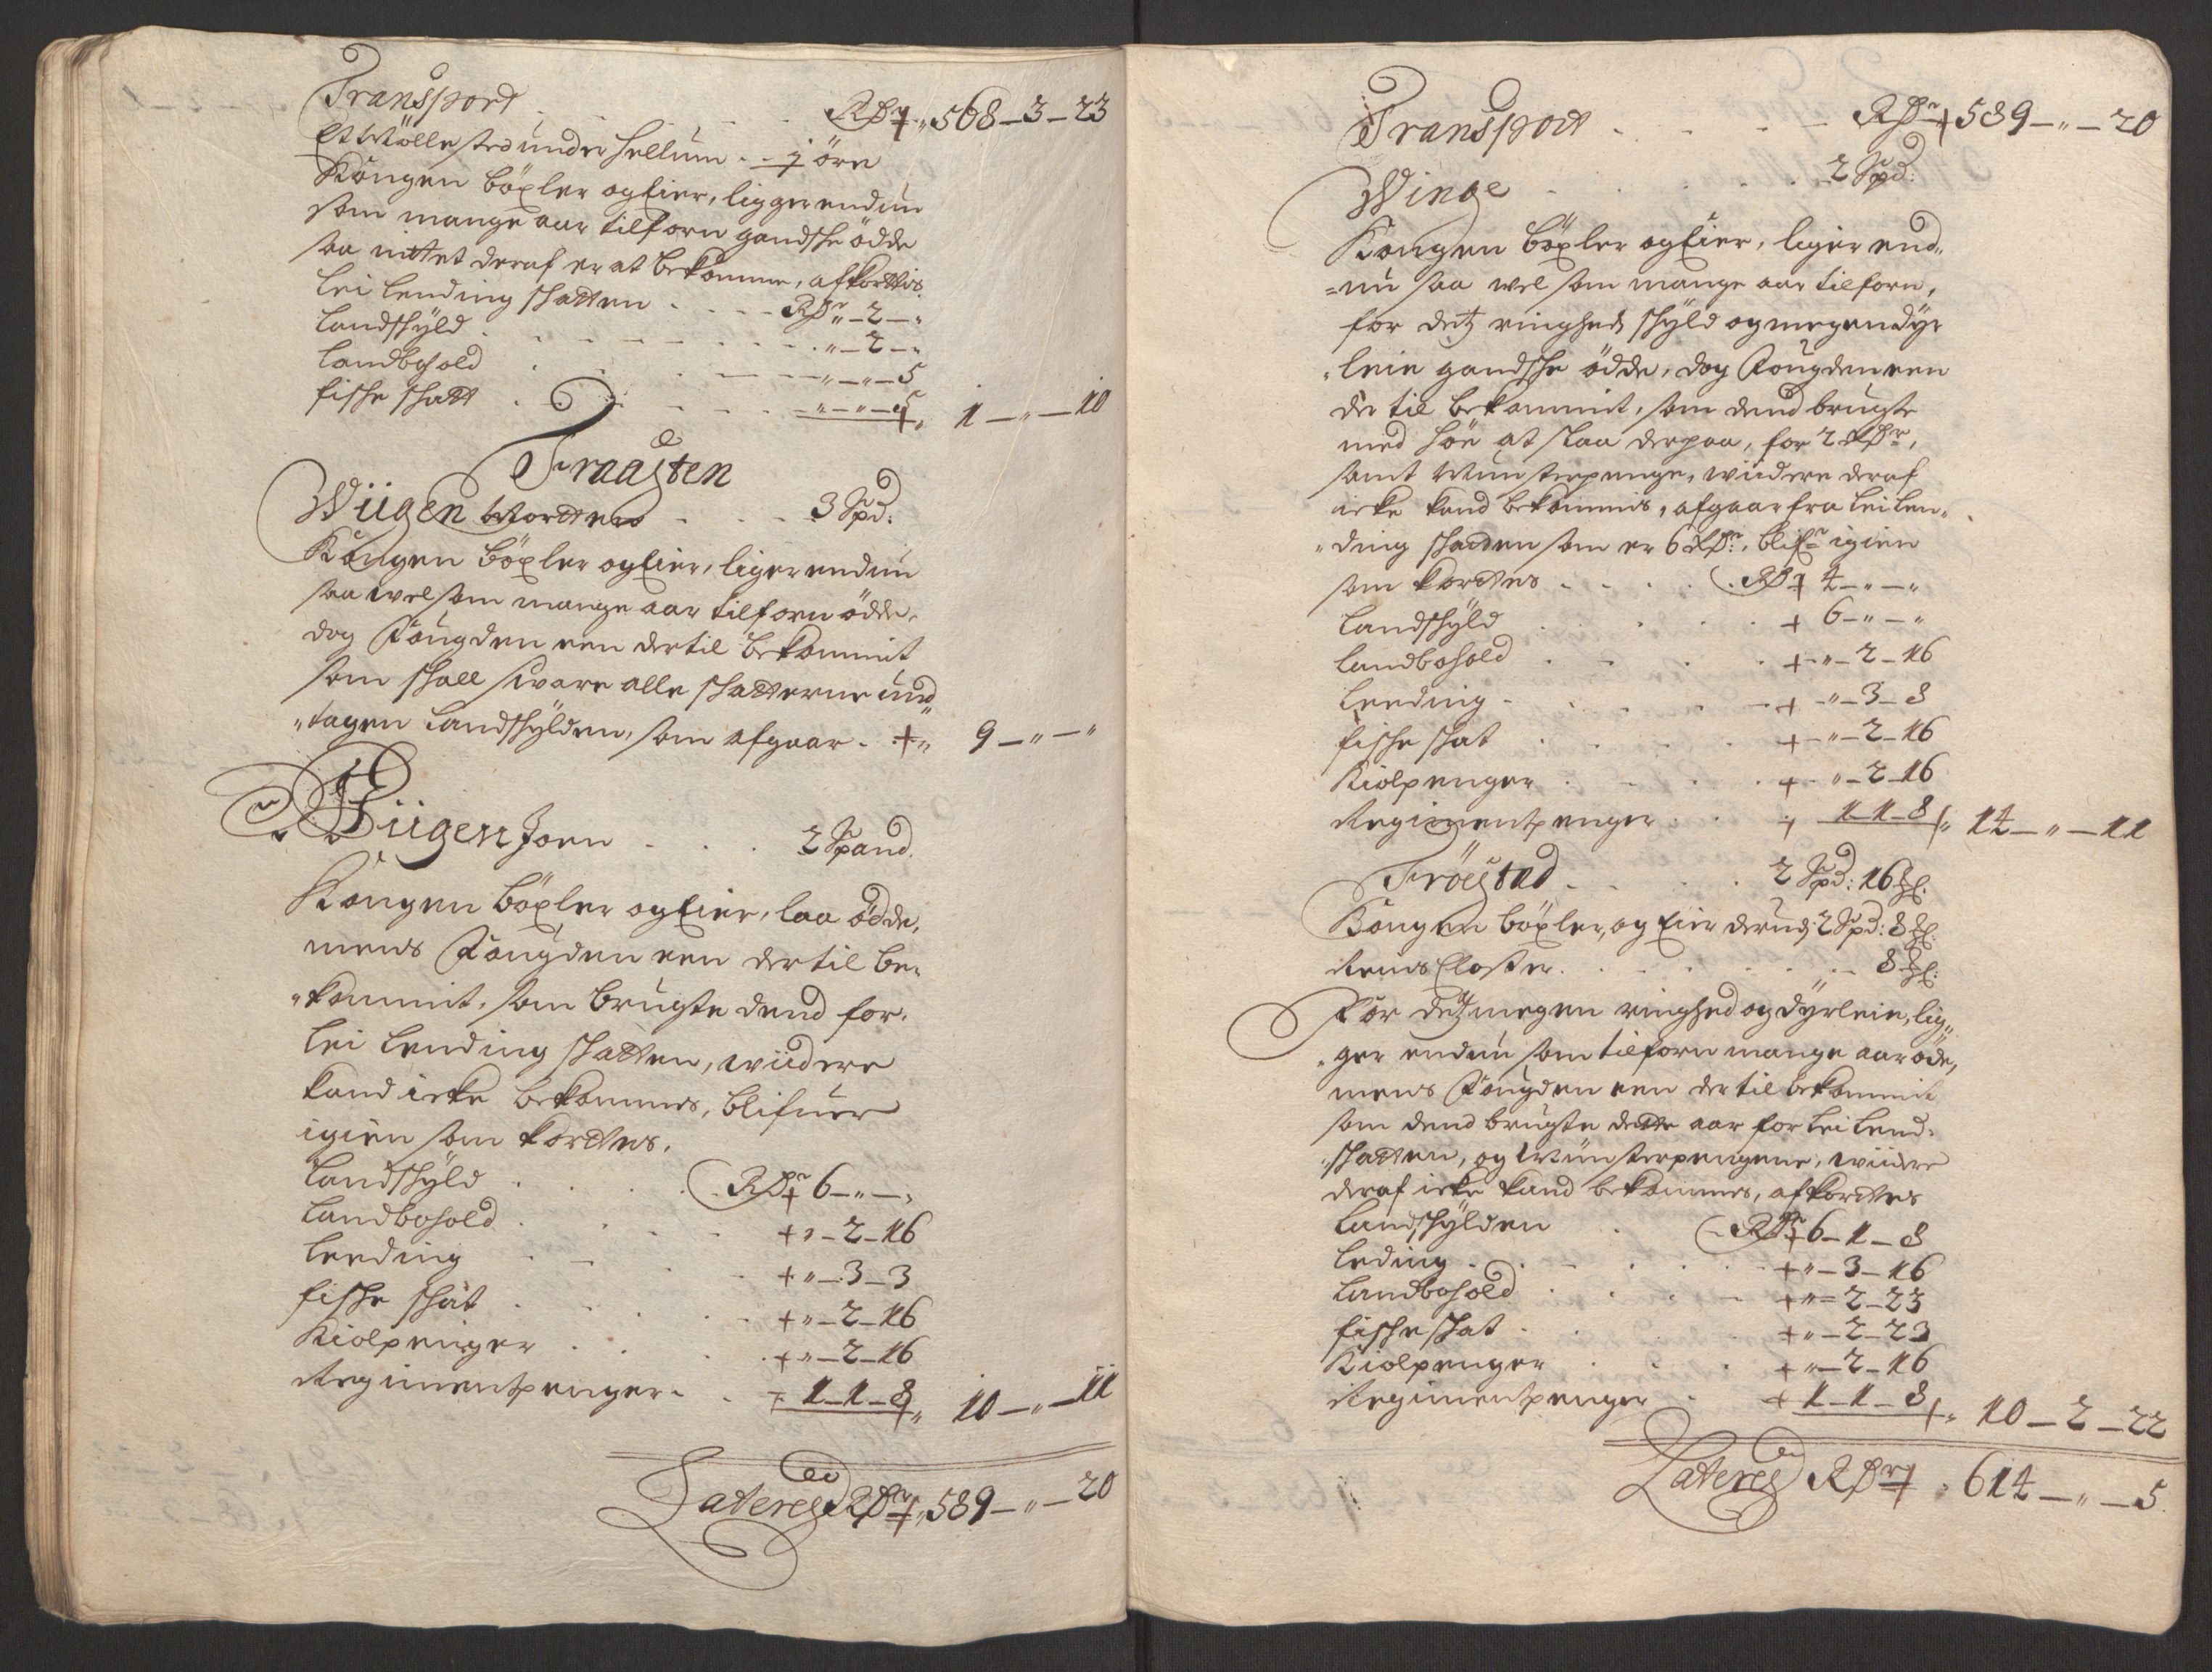 Transport . . . . Rdr 568 – 3 – 23
Et Mölle sted under Hellum . . j öre
Kongen böxler og Eier, ligger endnu
som mange aar tilforn gandske ödde
saa intet deraf er at bekomme, afkortis
Lei Lending skatten . . . . Rdr „ – 2 – „
Landskÿld . . . . . . „ – 2 – „
Landbohold . . . . „ – „ – 5
fiske skatt . . . . „ – „ – 5 „ 1 – „ – 10
Fraasten
Wiigen Norder . . . 3 Spd:
Kongen böxler og Eier, liger endnu
saa vel som mange aar tilforn ödde,
dog Fougden een dertil bekommit
som skall svare alle skatterne und„
„tagen Landskÿlden, som afgaar . „ 9 – „ – „
Wiigen Joen . . . 2 Spand.
Kongen böxler og Eier, laa ödde,
mens Fougden een dertil be„
„kommit, som brugte dend for.
Lei Lending skatten, wiidere
kand icke bekommes, blifuer
igien som kortes.
Landskÿld . . . . Rdr 6 – „ – „
Landbohold . . . . „ – 2 – 16
Leeding . . . . „ – 3 – 3
fiske skat . . . . „ – 2 – 16
Kiolpenger . . . . „ – 2 – 16
Regimentpenger . . 1 – 1 – 8 „ 10 – „ – 11
Lateres Rdr „ 589 – „ – 20
Transport . . . . Rdr 589 – „ – 20
Winge . . . . . 2 Spd:
Kongen böxler og Eier, liger end„
„nu saa vel som mange aar tilforn,
for detz ringhed skÿld og megen dÿr
„leie gandske ödde, dog Fougden een
der til bekommit, som dend brugte
med höe at slaa derpaa, for 2 Rdr,
samt Munsterpenge, wiidere deraf
icke kand bekommis, afgaar fra Lei Len„
„ding skatten som er 6 Rdr, blifr igien
som kortes . . . . Rdr 4 – „ – „
Landskÿld . . . . 6 – „ – „
Landbohold . . . . „ – 2 – 16
Leeding . . . . „ – 3 – 8
fiske skat . . . . „ – 2 – 16
Kiolpenger . . . . „ – 2 – 16
Regimentpenger . . . 1 1 – 8 „ 14 – „ – 11
Fröestad . . . . 2 Spd: 16
Kongen böxler, og Eier derudj 2 Spd: 8
Reins Closter . . . . . . 8
For detz megen ringhed og dÿrleie, lig„
„ger endnu som tilforn mange aar öde,
mens Fougden een der til bekommit
som dend brugte dette aar for Lei Lend„
„skatten, og Munsterpengene, wiidere
deraf icke kand bekommes, afkortes
Landskÿlden . . Rdr 6 – 1 – 8
Leding . . . . „ – 3 – 16
Landbohold . . . . „ – 2 – 23
fiske skat . . . . „ – 2 – 23
Kiolpenger . . . . „ – 2 – 16
Regimentpenger . . 1 – 1 – 8 „ 10 – 2 – 22
Lateres Rdr „ 614 – „ – 5